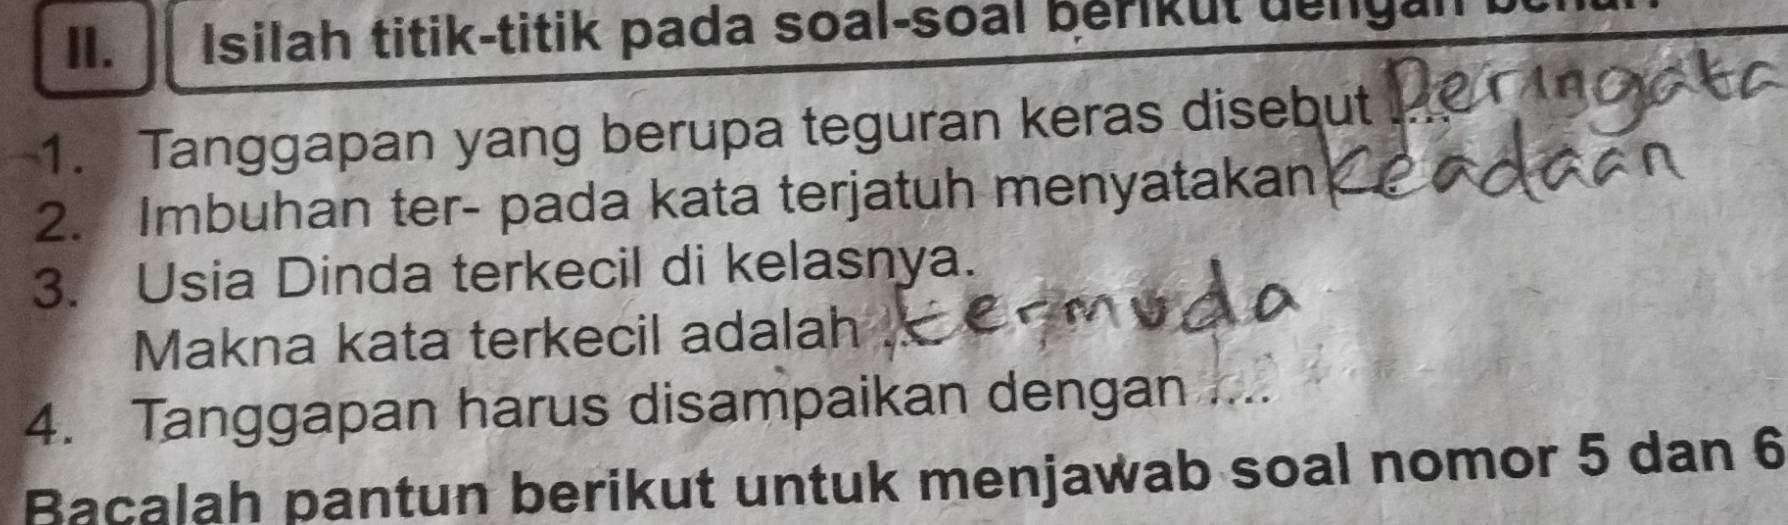 II. Isilah titik-titik pada soal-soal berikut dengan
1. Tanggapan yang berupa teguran keras disebut .... Peringata
2. Imbuhan ter- pada kata terjatuh menyatakan keadaan
3. Usia Dinda terkecil di kelasnya.
Makna kata terkecil adalah .. termuda
4. Tanggapan harus disampaikan dengan ....
Bacalah pantun berikut untuk menjawab soal nomor 5 dan 6